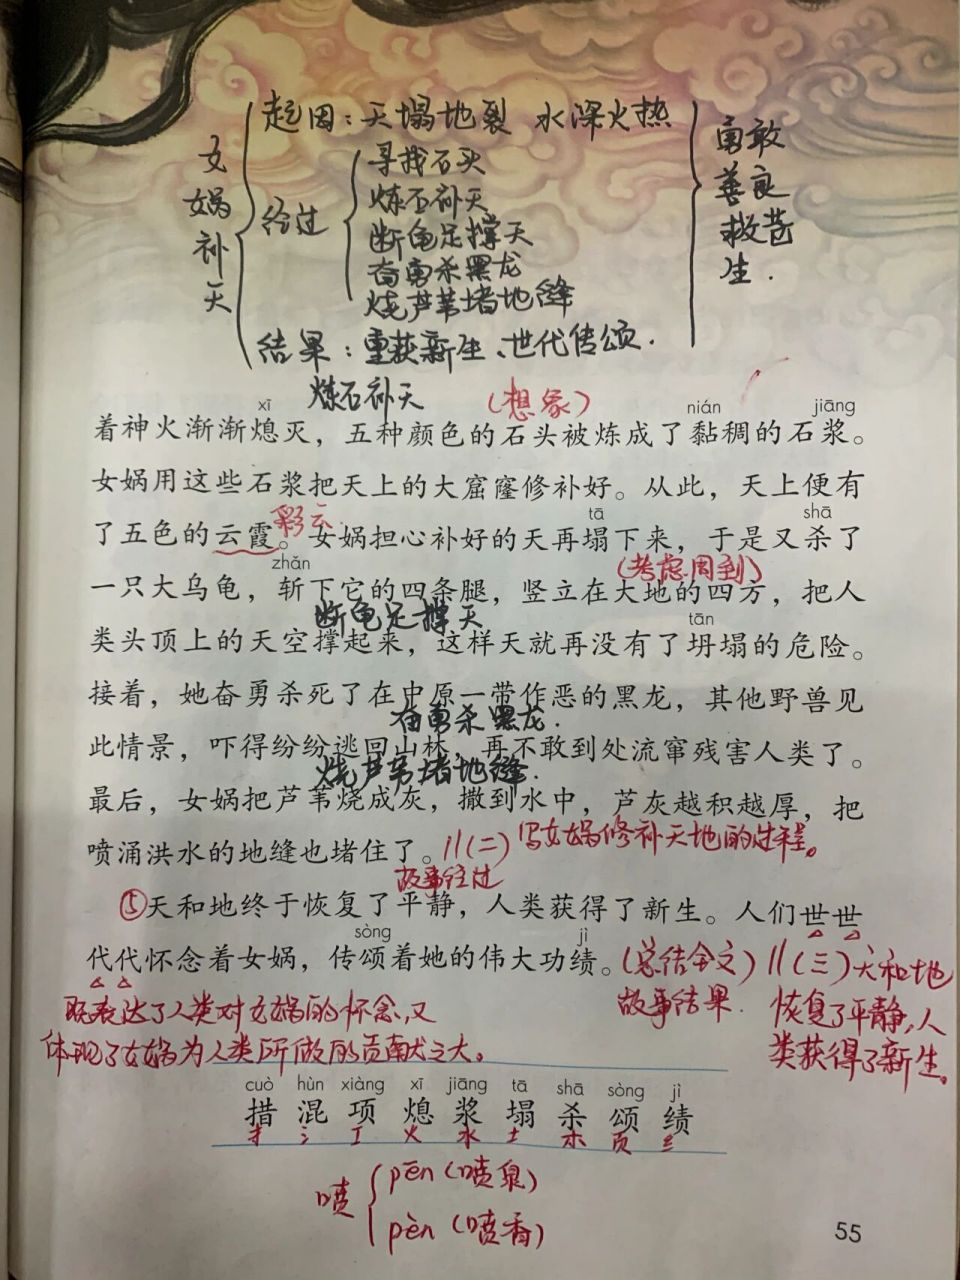 女娲补天
起因：天塌地裂 水深火热
经过
寻找石头
炼石补天
断龟足撑天
奋勇杀黑龙
烧芦苇堵地缝
结果：重获新生、世代传颂.
勇敢
善良
救苍
生.
炼石补天 (想象)
xī nián jiāng
着神火渐渐熄灭，五种颜色的石头被炼成了黏稠的石浆。
女娲用这些石浆把天上的大窟窿修补好。从此，天上便有
彩云 tā shā
了五色的云霞。女娲担心补好的天再塌下来，于是又杀了
zhǎn (考虑周到)
一只大乌龟，斩下它的四条腿，竖立在大地的四方，把人
断龟足撑天 tān
类头顶上的天空撑起来，这样天就再没有了坍塌的危险。
接着，她奋勇杀死了在中原一带作恶的黑龙，其他野兽见
奋勇杀黑龙.
此情景，吓得纷纷逃回山林，再不敢到处流窜残害人类了。
烧芦苇堵地缝.
最后，女娲把芦苇烧成灰，撒到水中，芦灰越积越厚，把
喷涌洪水的地缝也堵住了。//(二) 写女娲修补天地的过程。
故事经过
⑤天和地终于恢复了平静，人类获得了新生。人们世世
sòng jì
代代怀念着女娲，传颂着她的伟大功绩。(总结全文) //(三)天和地
故事结果. 恢复了平静,人
类获得了新生。
既表达了人类对女娲的怀念,又
体现了女娲为人类所做的贡献之大。
cuò hùn xiàng xī jiāng tā shā sòng jì
措 混 项 熄 浆 塌 杀 颂 绩
扌 氵 工 火 水 土 木 页 纟
喷
pēn (喷泉)
pèn (喷香)
55